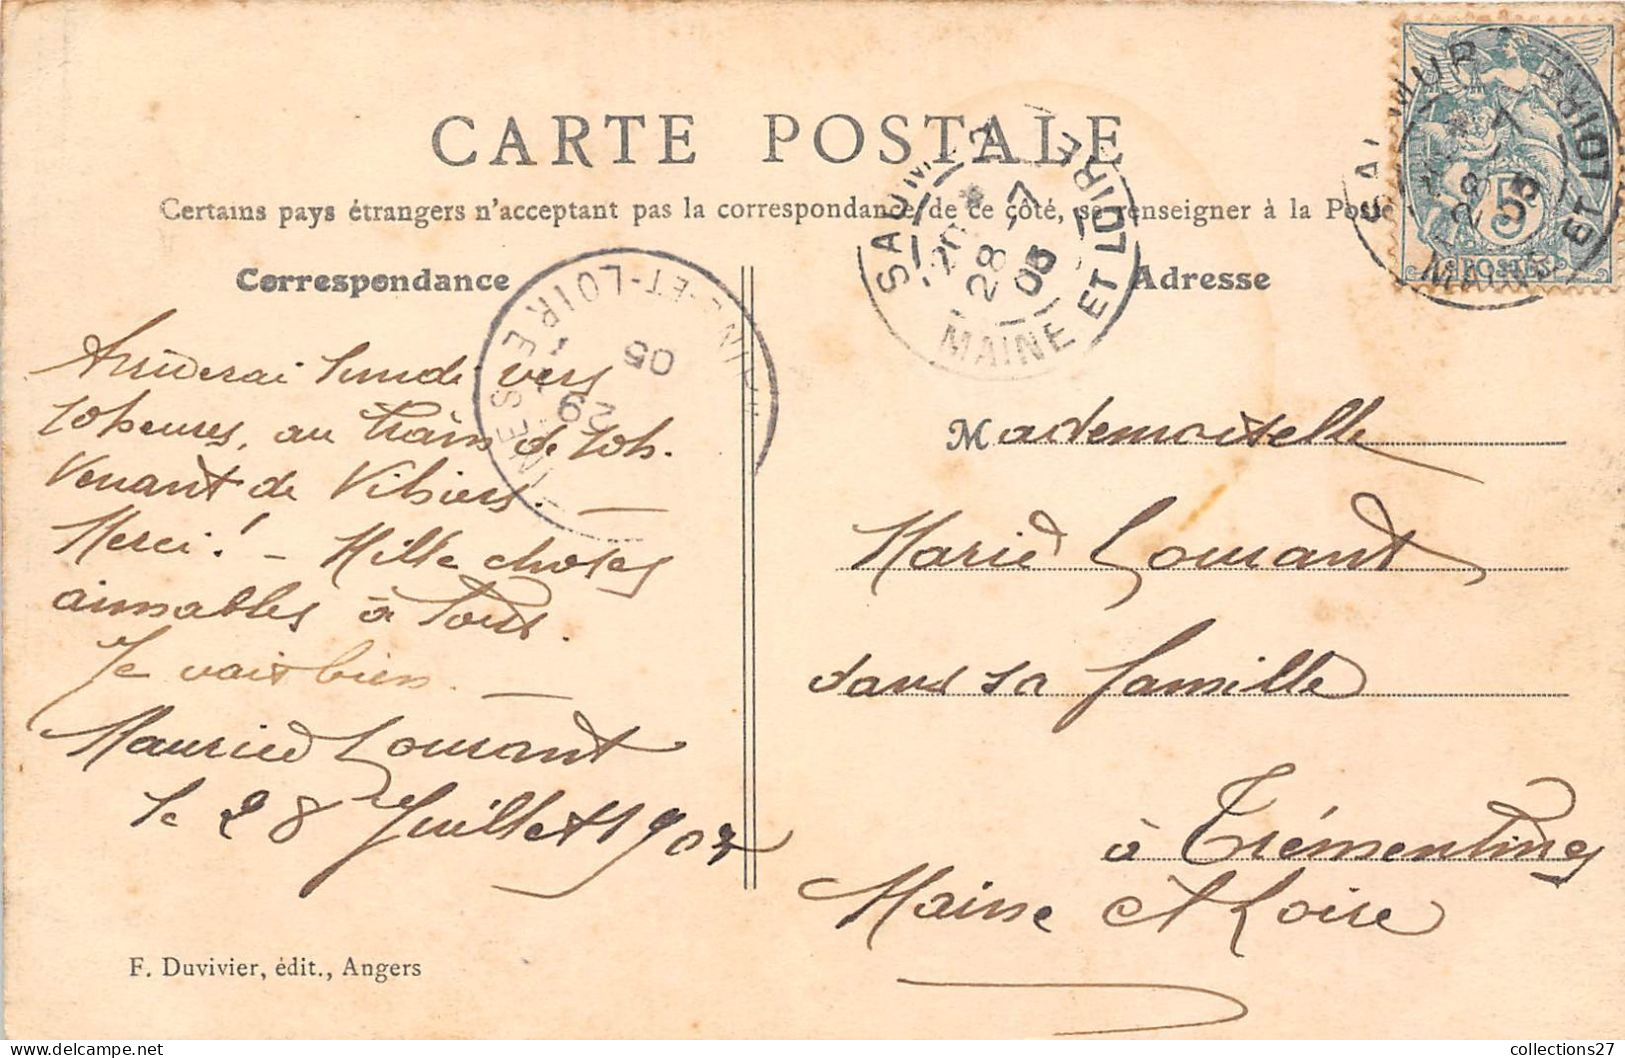 CARTE POSTALE
Certains pays étrangers n'acceptent pas la correspondance de ce côté, se renseigner à la Poste
Correspondance
Adresse
Arriverai lundi vers
10 heures, au train de 10h.
Venant de Vihiers. —
Merci! — Mille choses
aimables à Tous.
Je vais bien. —
Maurice Lourant
le 28 Juillet 1905
F. Duvivier, édit., Angers
Mademoiselle
Marie Lourant
dans sa famille
à Trémentines
Maine et Loire
SAUMUR
28 -7
05
MAINE ET LOIRE
SAUMUR
28 -7
05
MAINE ET LOIRE
5
POSTES
-ET-LOIRE
29
05
INES
collections27